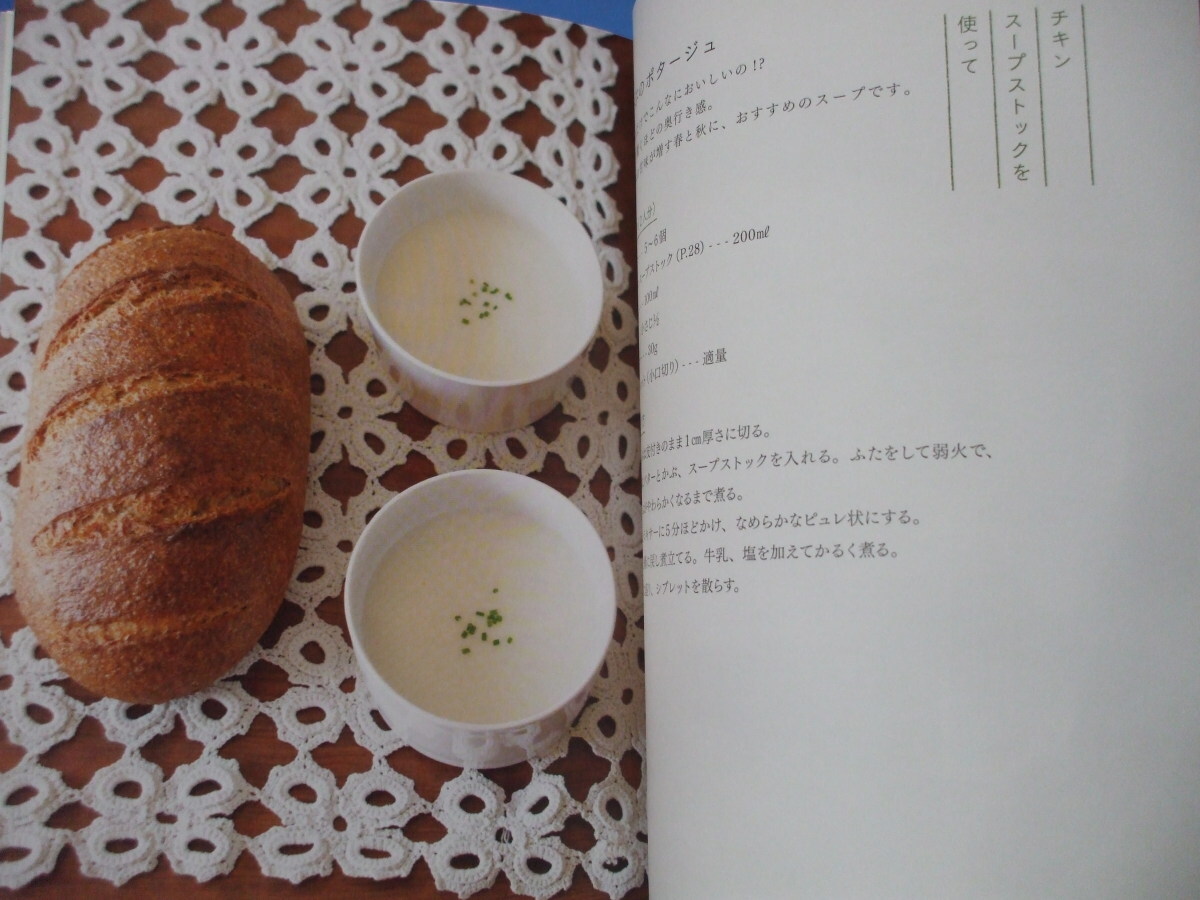 チキン
スープストックを
使って
のポタージュ
でこんなにおいしいの!?
ほどの奥行き感。
が増す春と秋に、おすすめのスープです。
人分)
5〜6個
スープストック(P.28) - - - 200㎖
100㎖
小さじ½
30g
(小口切り) - - - 適量
皮付きのまま1㎝厚さに切る。
ターとかぶ、スープストックを入れる。ふたをして弱火で、
やわらかくなるまで煮る。
サーに5分ほどかけ、なめらかなピュレ状にする。
戻し煮立てる。牛乳、塩を加えてかるく煮る。
、シブレットを散らす。